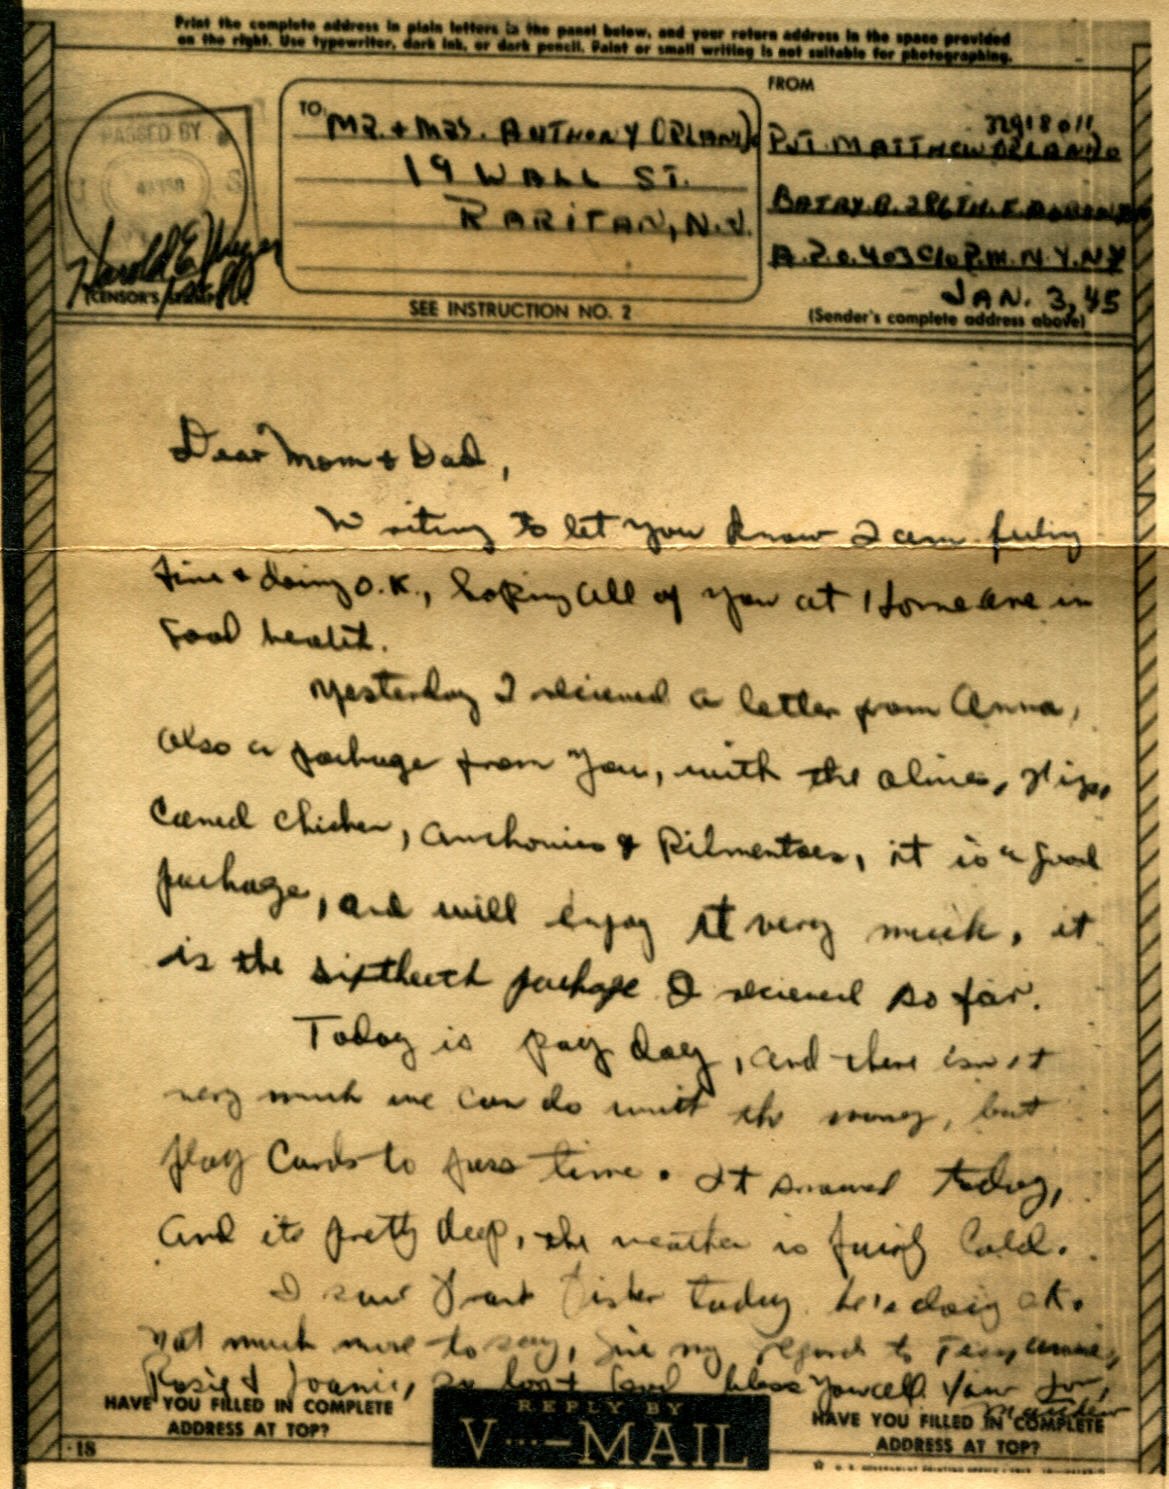 Print the complete address in plain letters in the panel below, and your return address in the space provided
on the right. Use typewriter, dark ink, or dark pencil. Faint or small writing is not suitable for photographing.
FROM
PASSED BY
TO
MR. + MRS. ANTHONY ORLANDO
19 WALL ST.
RARITAN, N.J.
32918011
PVT. MATTHEW ORLANDO
BATRY B. 286TH. F.
A.P.O. 403 C/o P.M. N.Y. N.Y.
JAN. 3, 45
(CENSOR'S STAMP)
SEE INSTRUCTION NO. 2
(Sender's complete address above)
Dear Mom + Dad,
Writing to let you know I am feeling
fine + doing O.K., hoping all of you at Home are in
Good health.
Yesterday I recieved a letter from Anna,
also a package from you, with the olives,
caned chicken, anchovies & Pilmentoes, it is a good
package, and will enjoy it very much, it
is the package I recieved so far.
Today is pay day, and there isn't
very much we can do with the money, but
play Cards to pass time. It snowed today,
and its pretty deep, the weather is fairly Cold.
I saw today, he's doing ok.
Not much more to say, give my regards to
Rosie & Joanie, so long + God bless you all. Your Son,
Matthew
HAVE YOU FILLED IN COMPLETE
ADDRESS AT TOP?
REPLY BY
V···–MAIL
HAVE YOU FILLED IN COMPLETE
ADDRESS AT TOP?
18